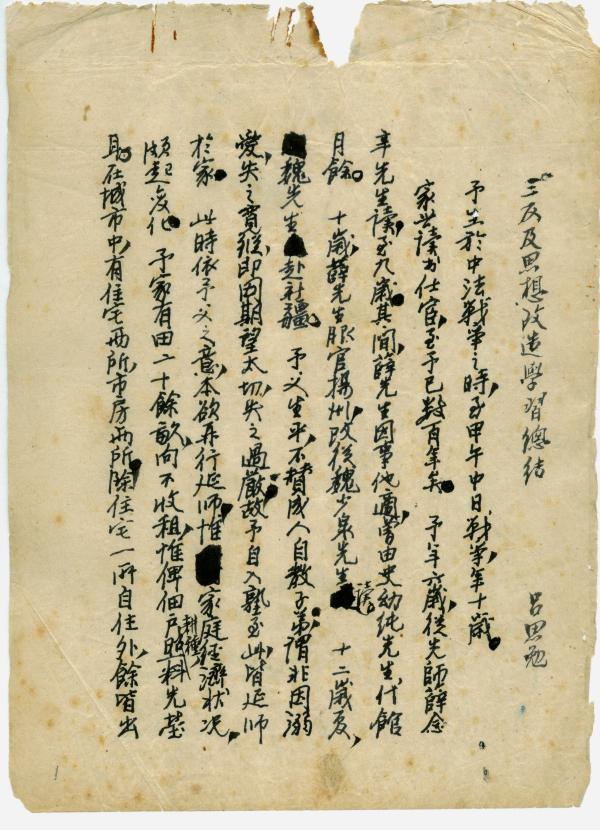 三反及思想改造學習總結
呂思勉
予生於中法戰爭之時，至甲午中日戰爭，年十歲。
家世讀書仕宦，至予已數百年矣。予年六歲，從先師薛念
辛先生讀，至九歲。其間，薛先生因事他適，曾由史幼純先生代館
月餘。十歲，薛先生服官揚州，改從魏少泉先生讀。十二歲夏，
魏先生赴新疆。予父生平，不贊成人自教子弟，謂非因溺
愛，失之寬縱，即因期望太切，失之過嚴，故予自入塾至此，皆延師
於家。此時依予父之意，本欲再行延師，惟家庭經濟狀況，
頗起變化。予家有田二十餘畝，向不收租，惟俾佃戶耕種，照料先塋
耳。在城市中，有住宅兩所，市房兩所，除住宅一所自住外，餘皆出